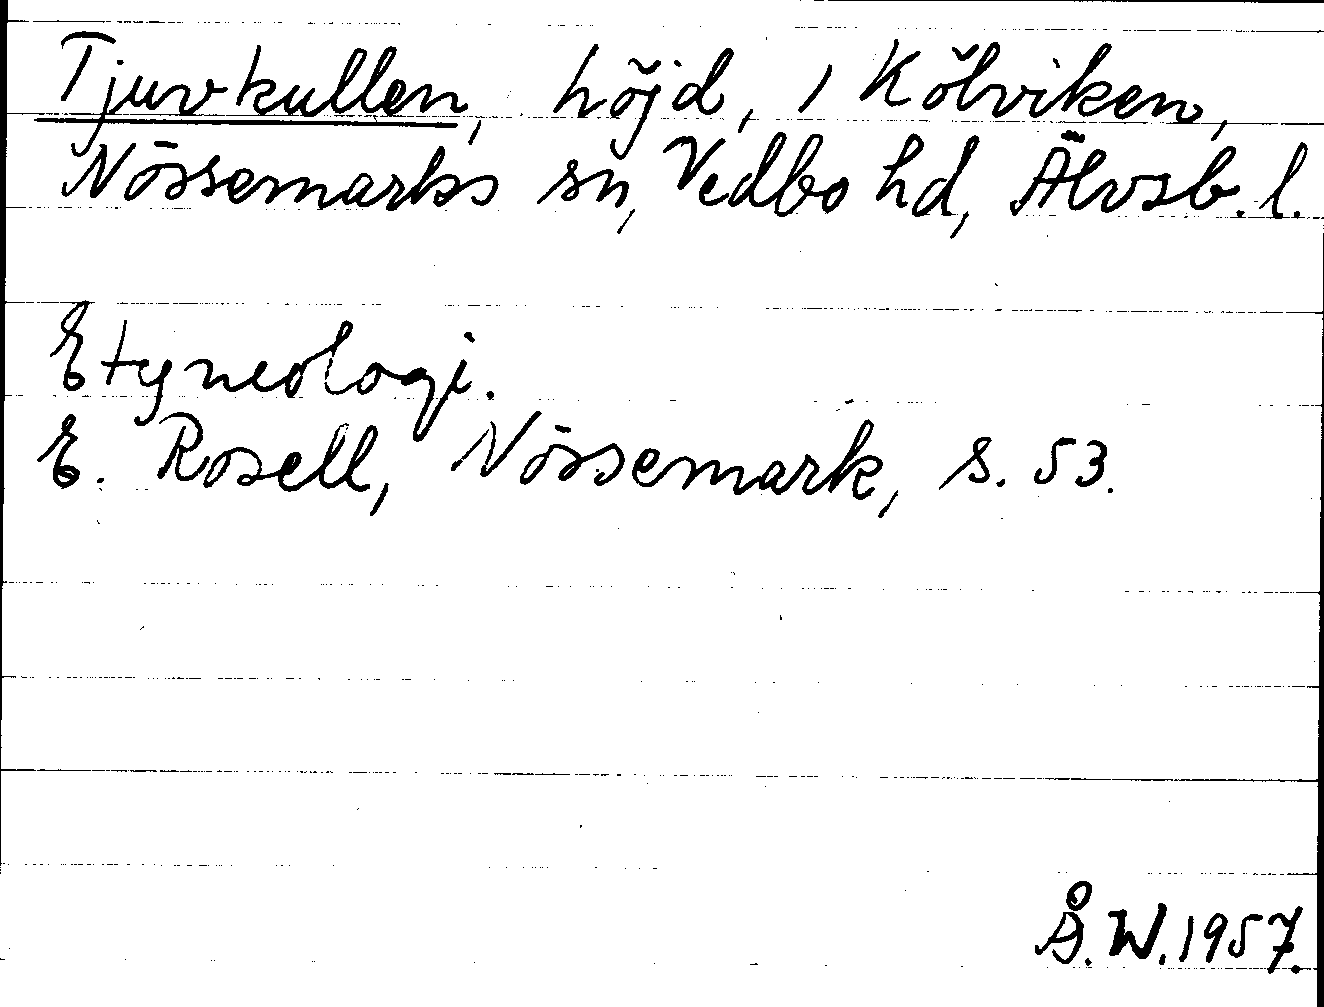 Tjuvkullen, höjd, i Kölviken,
Nössemarks sn, Vedbo hd, Älvsb. l.
Etymologi.
E. Rosell, Nössemark, s. 53.
Å. W. 1957.